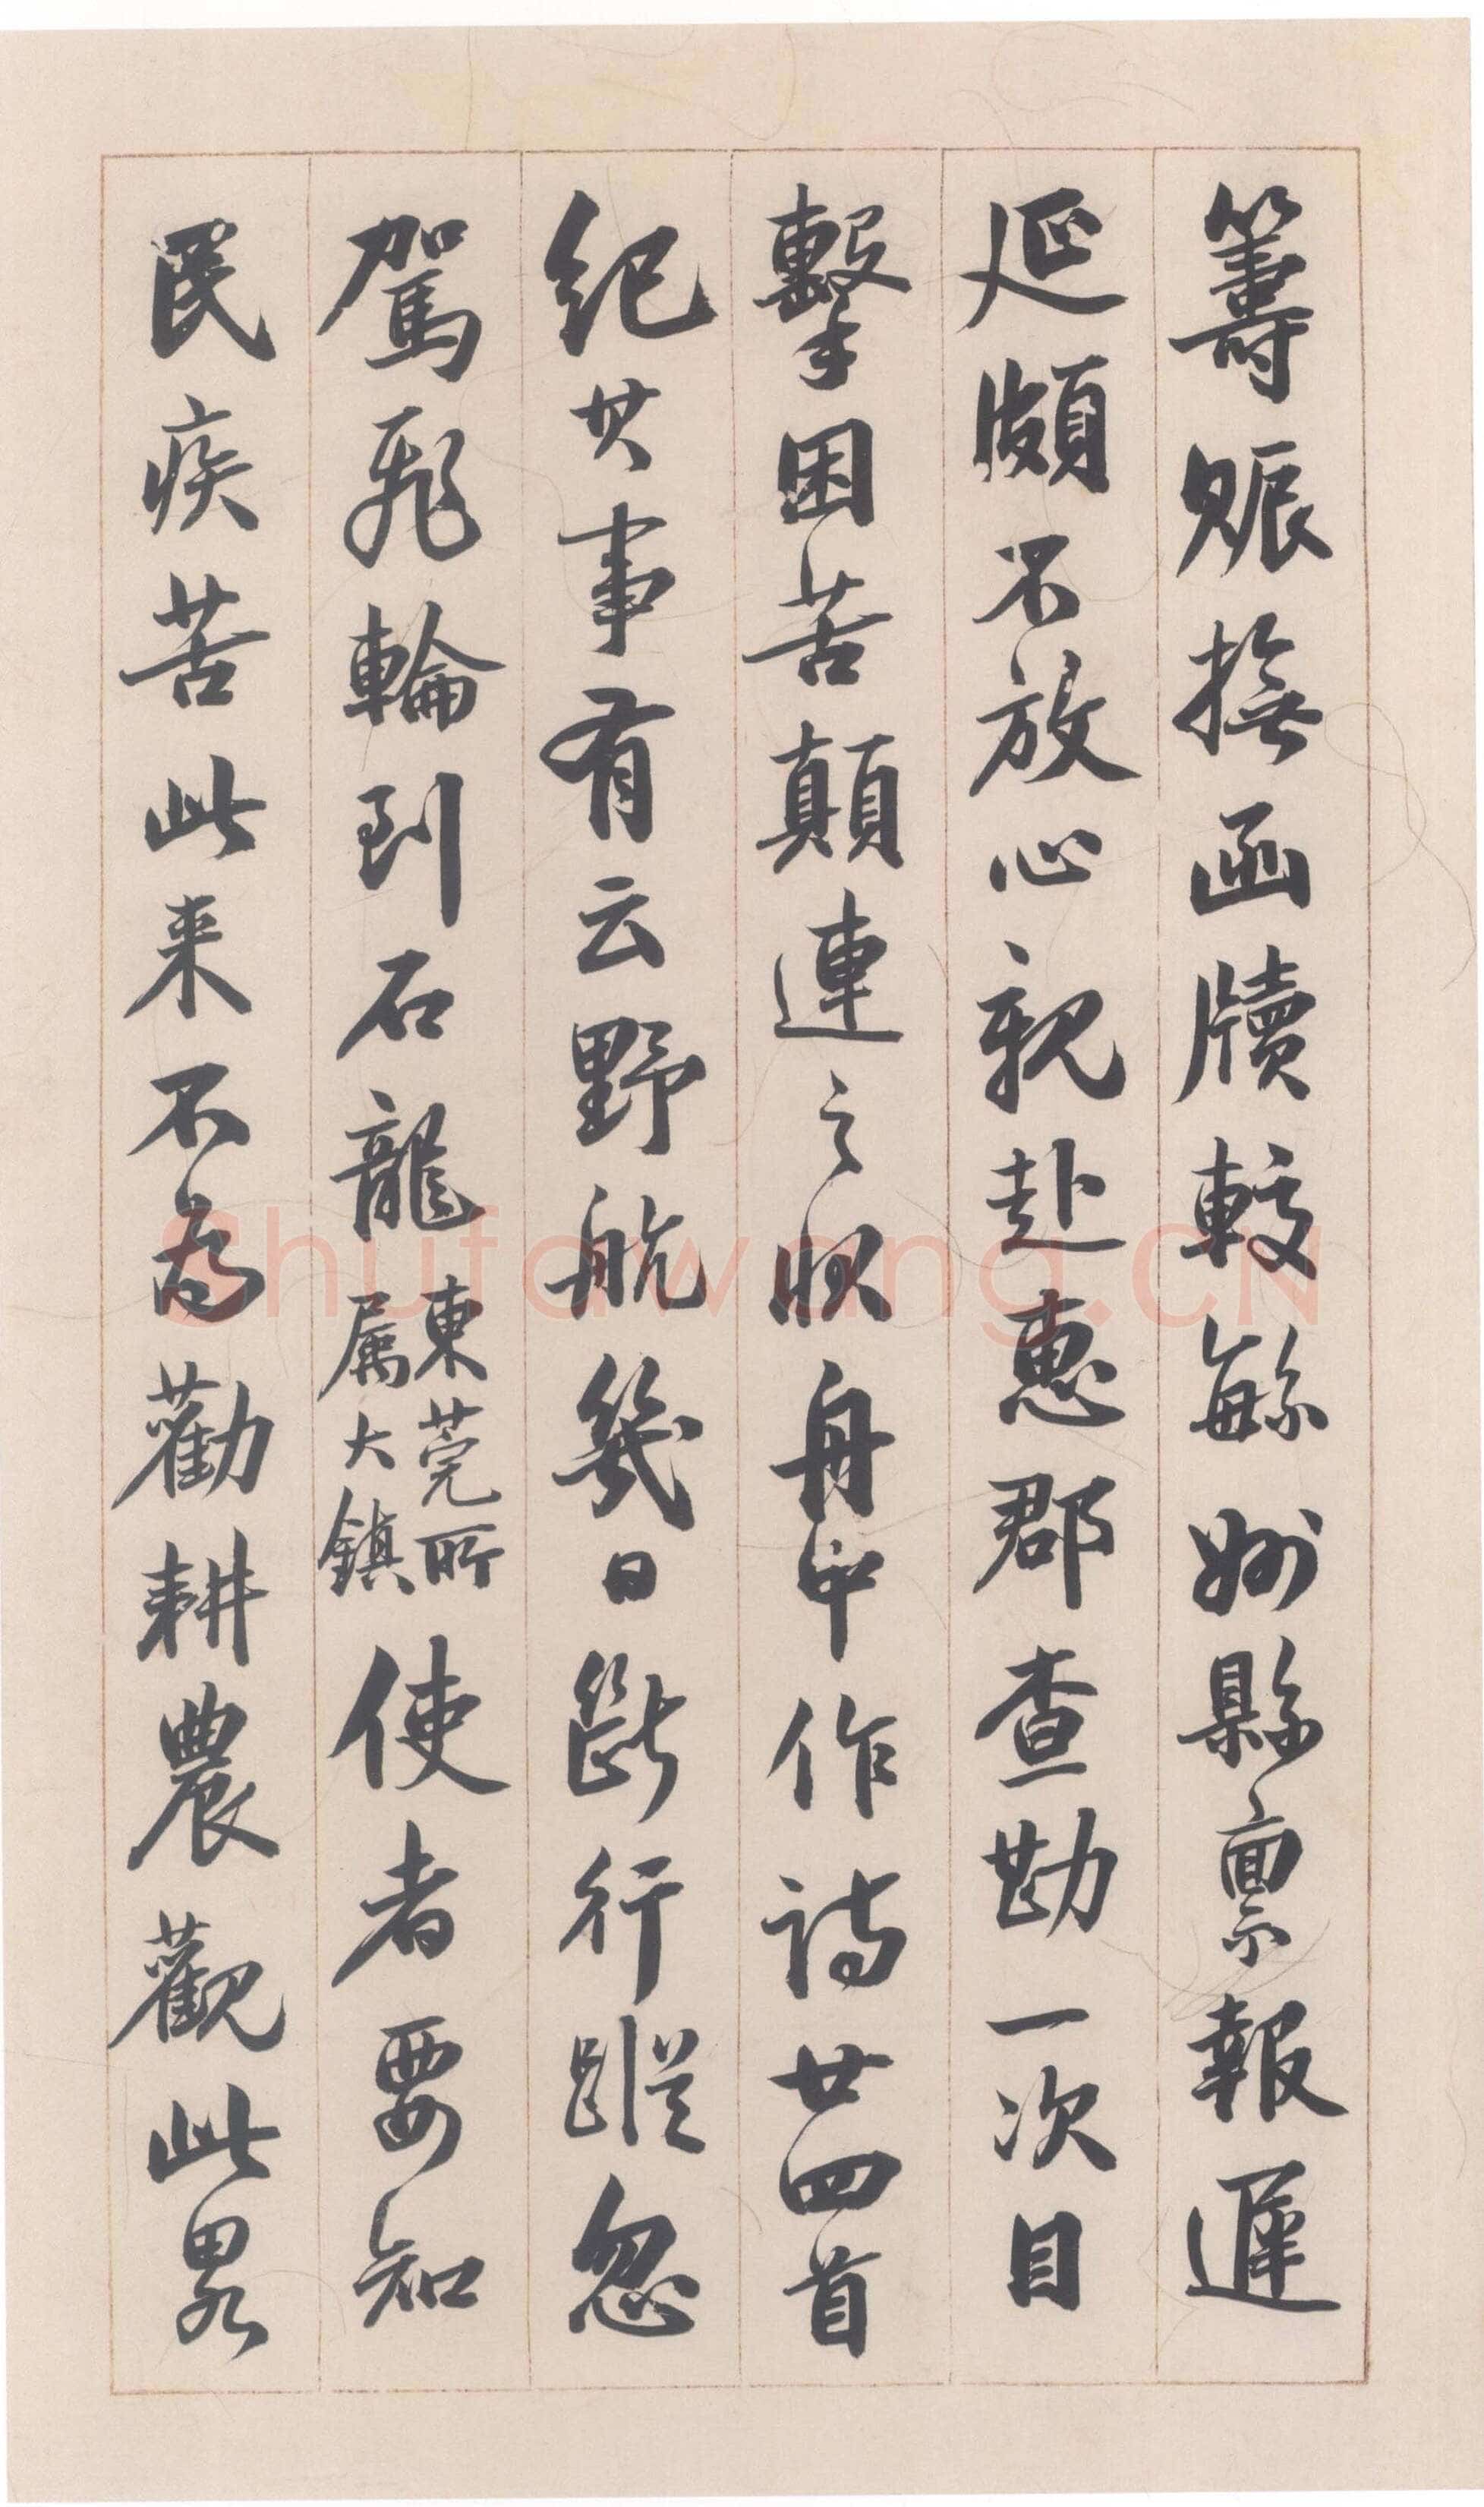 籌賑撫函牘較緐州縣禀報遲
延頗不放心親赴惠郡查勘一次目
擊困苦顛連之狀舟中作詩廿四首
紀其事有云野航幾日斷行蹤忽
駕飛輪到石龍東莞所屬大鎮使者要知
民疾苦此来不為勸耕農觀此畧
Shufawang.CN